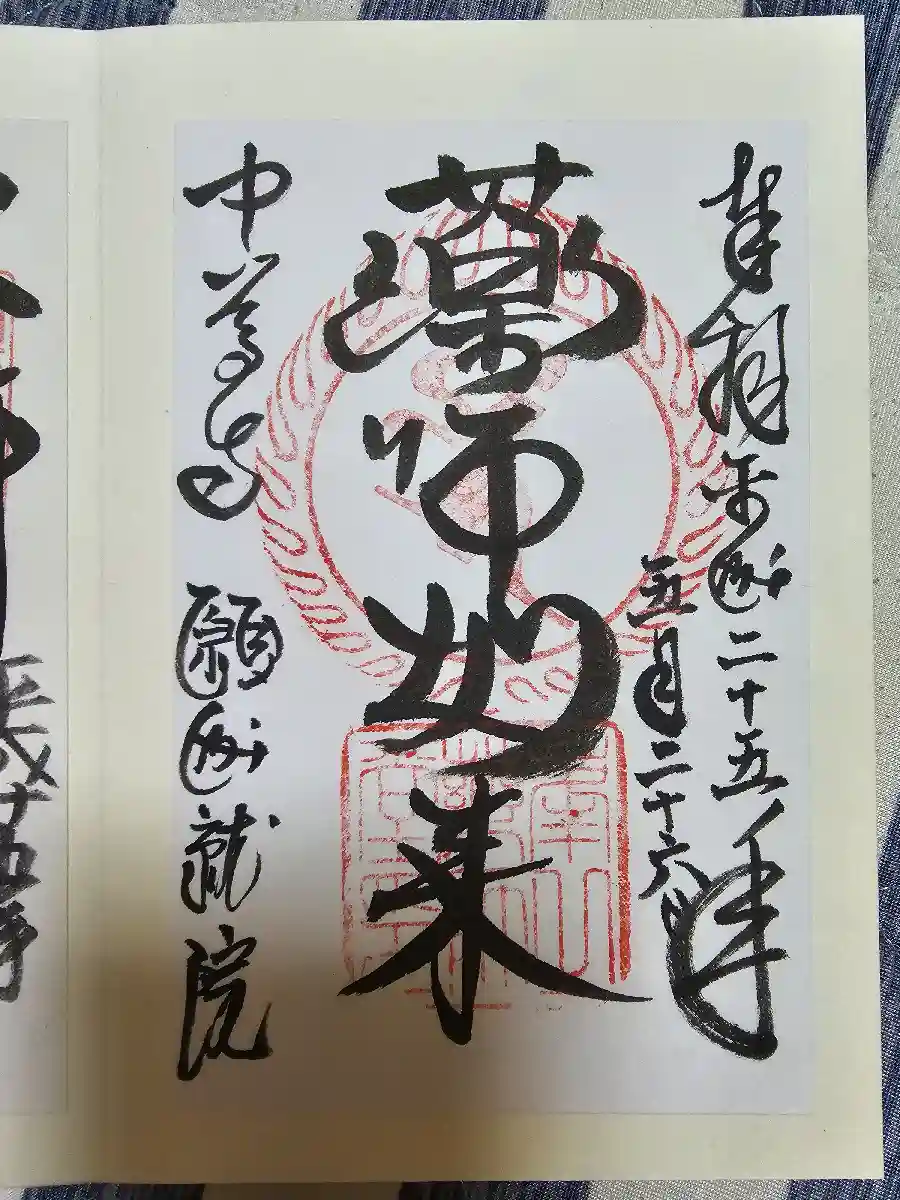 奉拝 平成二十五年
五月二十六日
薬師如来
中尊寺 願成就院
平成十五年